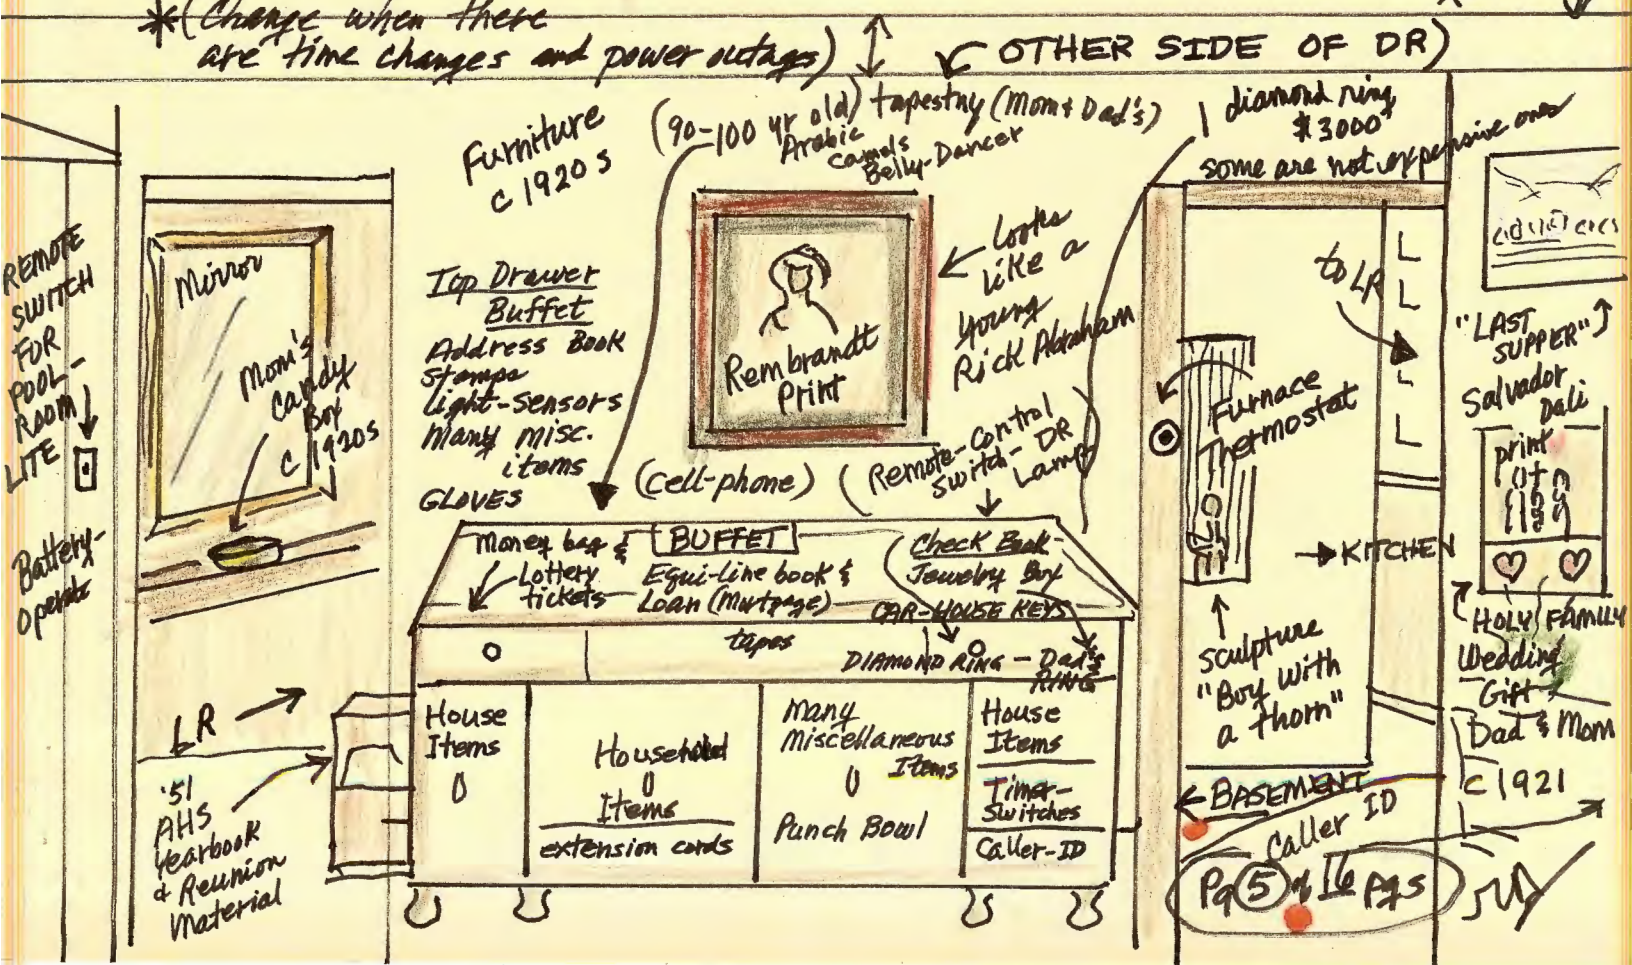 *(Change when there
are time changes and power outages)
OTHER SIDE OF DR)
Furniture
c 1920s
(90-100 yr old) tapestry (Mom & Dad's)
Arabic
camels
Belly-Dancer
1 diamond ring
$3000+
some are not expensive ones
REMOTE
SWITCH
FOR
POOL-
ROOM
LITE
Battery-
operate
Mirror
Mom's
Candy
Box
c 1920s
Top Drawer
Buffet
Address Book
Stamps
Light-sensors
Many misc.
items
GLOVES
Rembrandt
Print
Looks
like a
young
Rick Abraham
(cell-phone)
(Remote-Control
Switch-DR
Lamp)
to LR
Furnace
Thermostat
"LAST
SUPPER"
Salvador
Dali
print
Money bag &
Lottery
tickets
BUFFET
Equi-line book &
Loan (Mortgage)
Check Book
Jewelry Box
CAR-HOUSE KEYS
tapes
DIAMOND RING - Dad's
RING
→KITCHEN
Sculpture
"Boy with
a thorn"
HOLY FAMILY
Wedding
Gift
Dad & Mom
c 1921
LR
'51
AHS
Yearbook
& Reunion
Material
House
Items
Household
Items
extension cords
Many
Miscellaneous
Items
Punch Bowl
House
Items
Timer-
Switches
Caller-ID
←BASEMENT
Caller ID
Pg 5 of 16 pgs